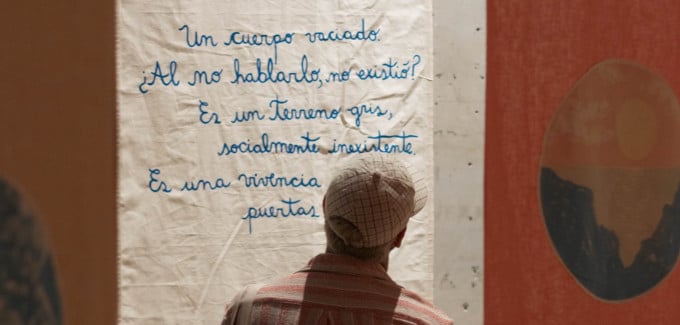 Un cuerpo vaciado.
¿Al no hablarlo, no existió?
Es un terreno gris,
socialmente inexistente.
Es una vivencia
puertas